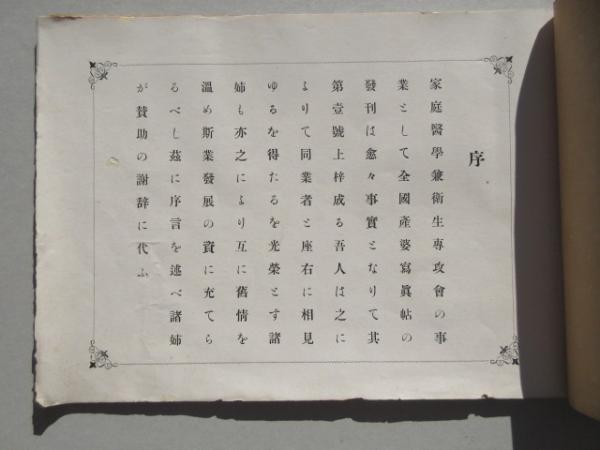 序
家庭醫學兼衞生専攻會の事
業として全國產婆寫眞帖の
發刊は愈々事實となりて其
第壹號上梓成る吾人は之に
よりて同業者と座右に相見
ゆるを得たるを光榮とす諸
姉も亦之により互に舊情を
溫め斯業發展の資に充てら
るべし茲に序言を述べ諸姉
が賛助の謝辞に代ふ